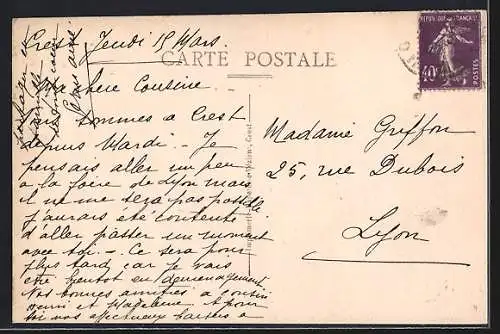 Crest Jeudi 15 Mars.
CARTE POSTALE
Ma chère Cousine
Nous sommes à Crest
depuis Mardi - Je
pensais aller un peu
à la foire de Lyon mais
il ne me sera pas possible
j'aurais été contente
d'aller passer un moment
avec toi - Ce sera pour
plus tard car je vais
être bientôt en déménagement
Nos bonnes amitiés à cousin
Henri et Madeleine et pour
toi nos affectueux baisers
Madame Griffon
25, rue Dubois
Lyon
REPUBLIQUE FRANÇAISE
40c
POSTES